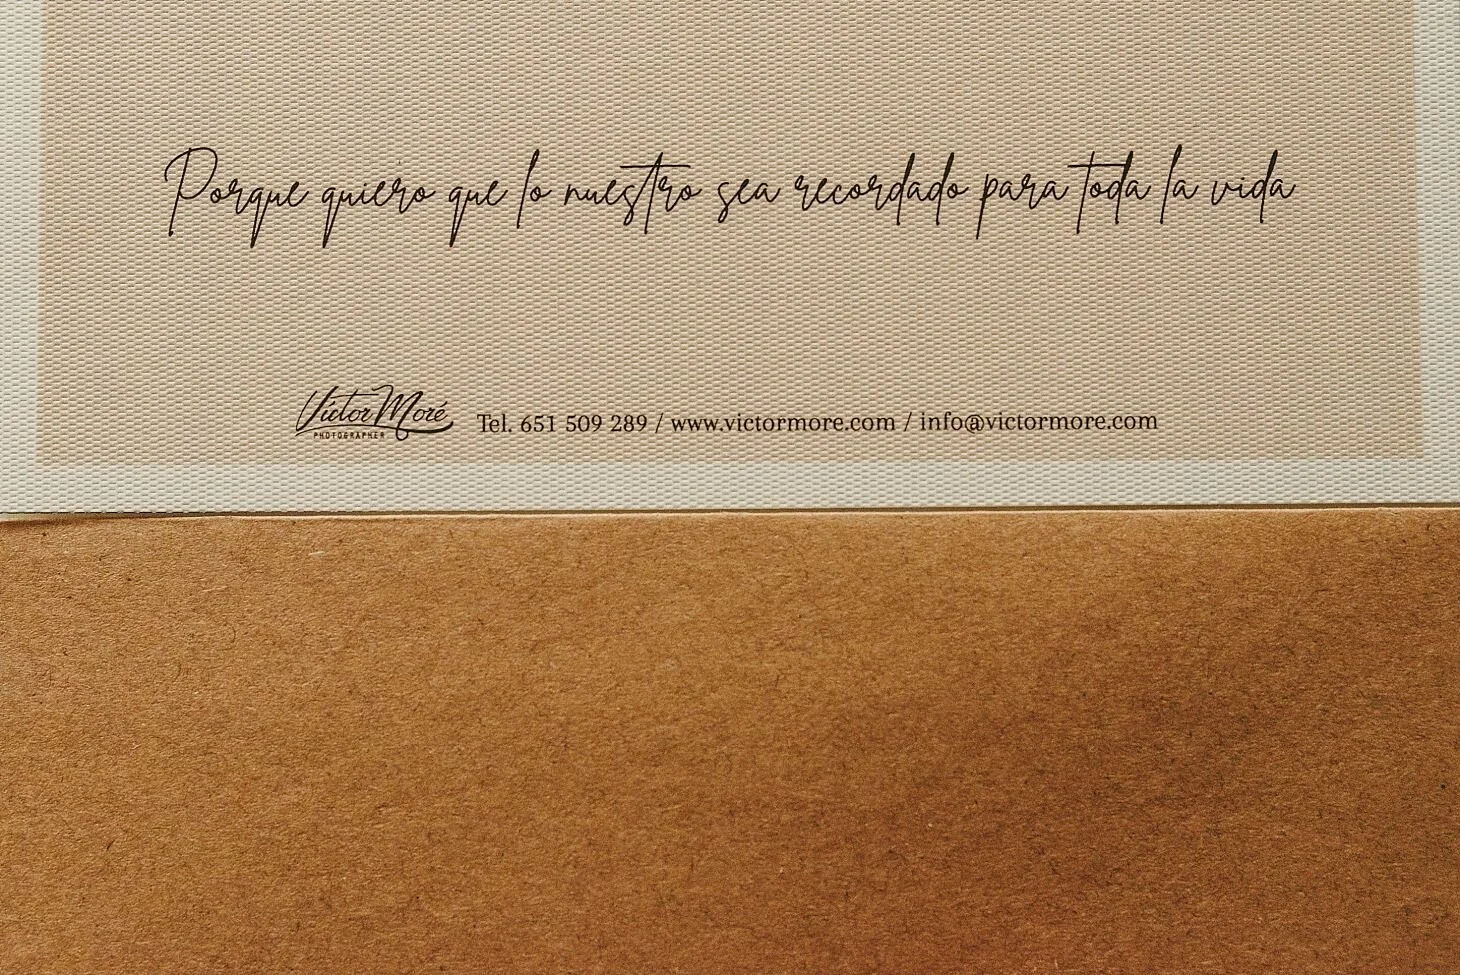 Porque quiero que lo nuestro sea recordado para toda la vida
Víctor Moré
PHOTOGRAPHER
Tel. 651 509 289 / www.victormore.com / info@victormore.com